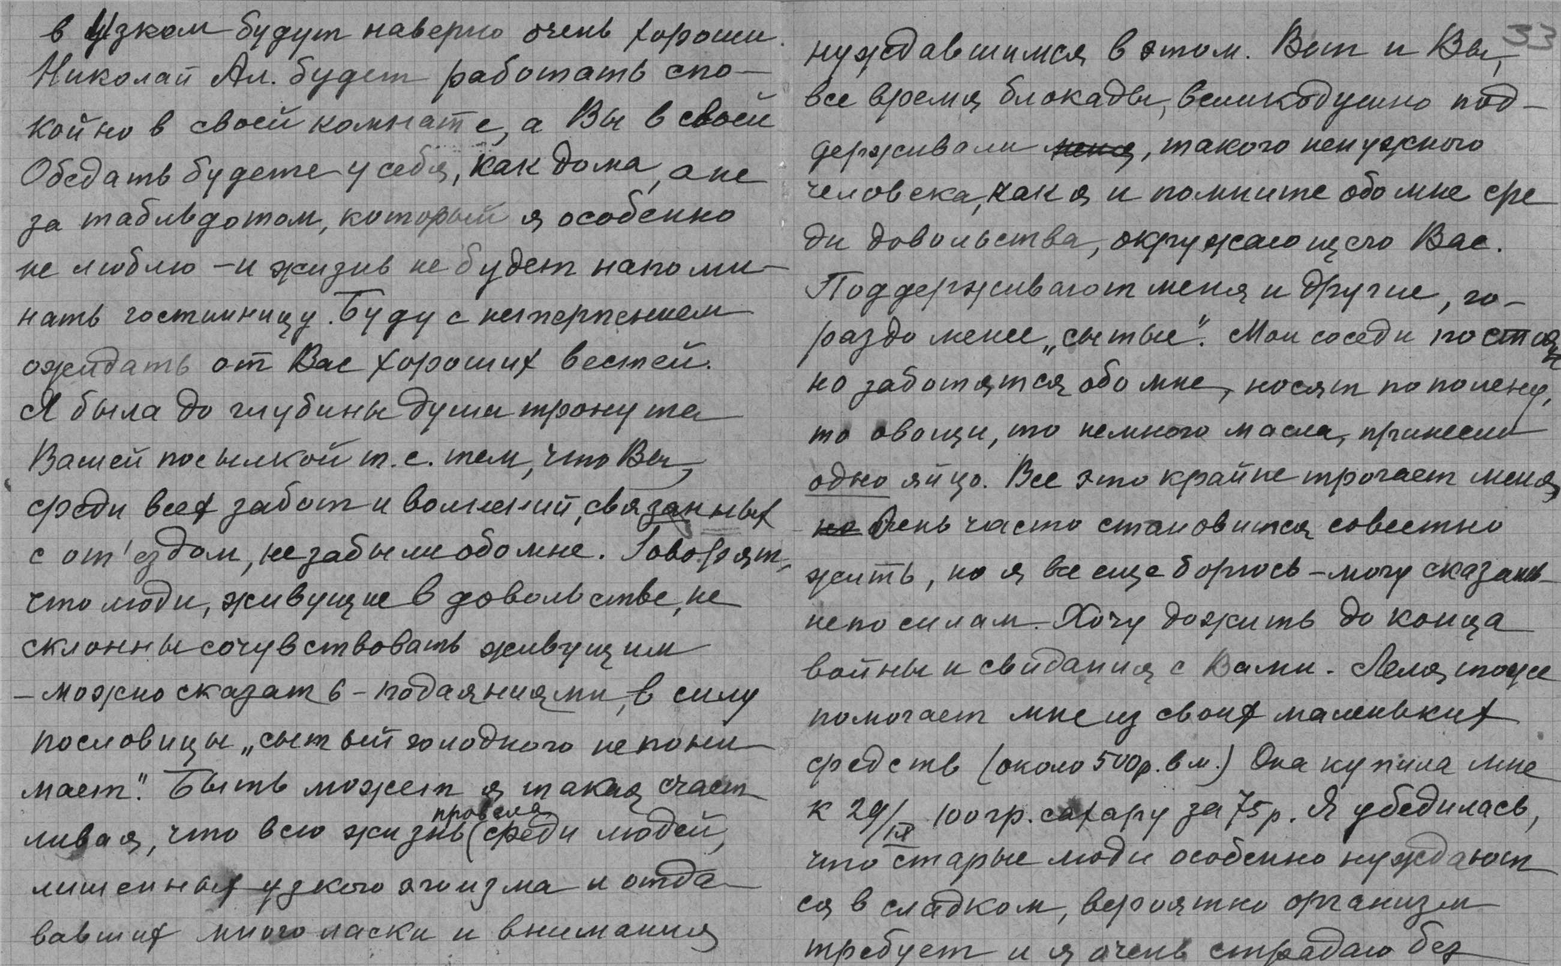 в Узком будут наверно очень хороши.
Николай Ал. будет работать спо-
койно в своей комнате, а Вы в своей
Обедать будете у себя, как дома, а не
за табльдотом, который я особенно
не люблю – и жизнь не будет напоми-
нать гостиницу. Буду с нетерпением
ожидать от Вас хороших вестей.
Я была до глубины души тронута
Вашей посылкой т.е. тем, что Вы,
среди всех забот и волнений, связанных
с от'ездом, не забыли обо мне. Говорят,
что люди, живущие в довольстве, не
склонны сочувствовать живущим
– можно сказать – подаяниями, в силу
пословицы „сытый голодного не пони-
мает". Быть может я такая счаст
провела
ливая, что всю жизнь (среди людей,
лишенных узкого эгоизма и отда-
вавших много ласки и внимания
33
нуждавшимся в этом. Вот и Вы,
все время блокады, великодушно под-
держивали меня, такого ненужного
человека, как я и помните обо мне сре
ди довольства, окружающего Вас.
Поддерживают меня и другие, го-
раздо менее „сытые". Мои соседи постоян
но заботятся обо мне, носят по полену,
то овощи, то немного масла, принесли
одно яйцо. Все это крайне трогает меня
но Очень часто становится совестно
жить, но я все еще борюсь – могу сказать
не по силам. Хочу дожить до конца
войны и свидания с Вами. Леля тоже
помогает мне из своих маленьких
средств (около 500 р. в м.) Она купила мне
к 29/IX 100 гр. сахару за 75 р. Я убедилась,
что старые люди особенно нуждают
ся в сладком, вероятно организм
требует и я очень страдаю без